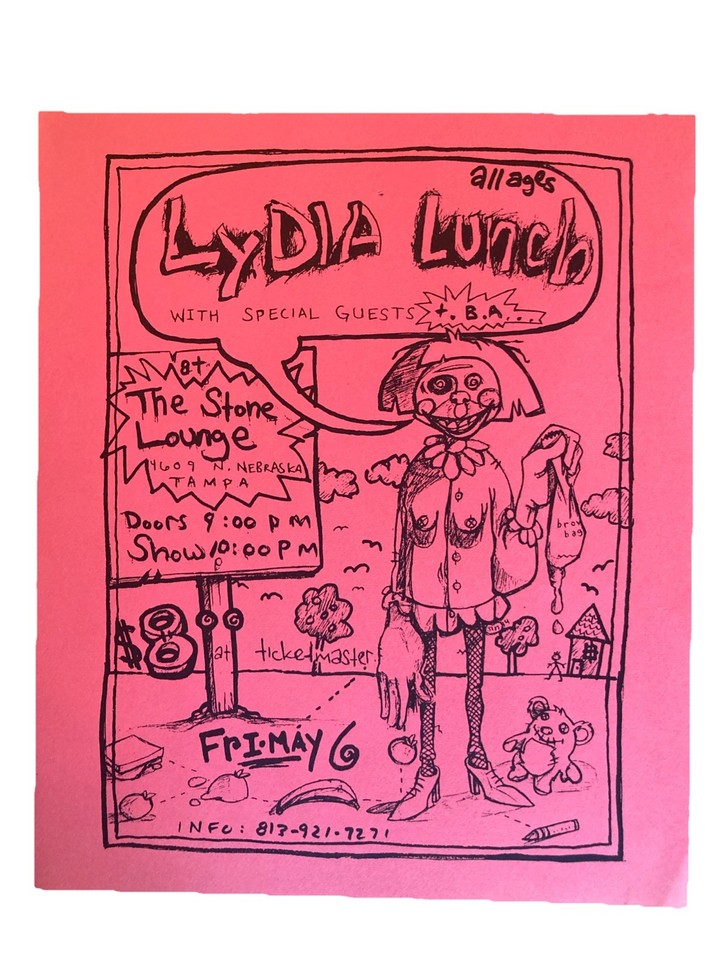 all ages
LyDIA Lunch
WITH SPECIAL GUESTS t.B.A...
8+
The Stone
Lounge
4609 N. NEBRASKA
TAMPA
Doors 9:00 PM
Show 10:00 PM
brow
bag
$8.00 at ticketmaster.
FRI. MAY 6
INFO: 813-921-7271